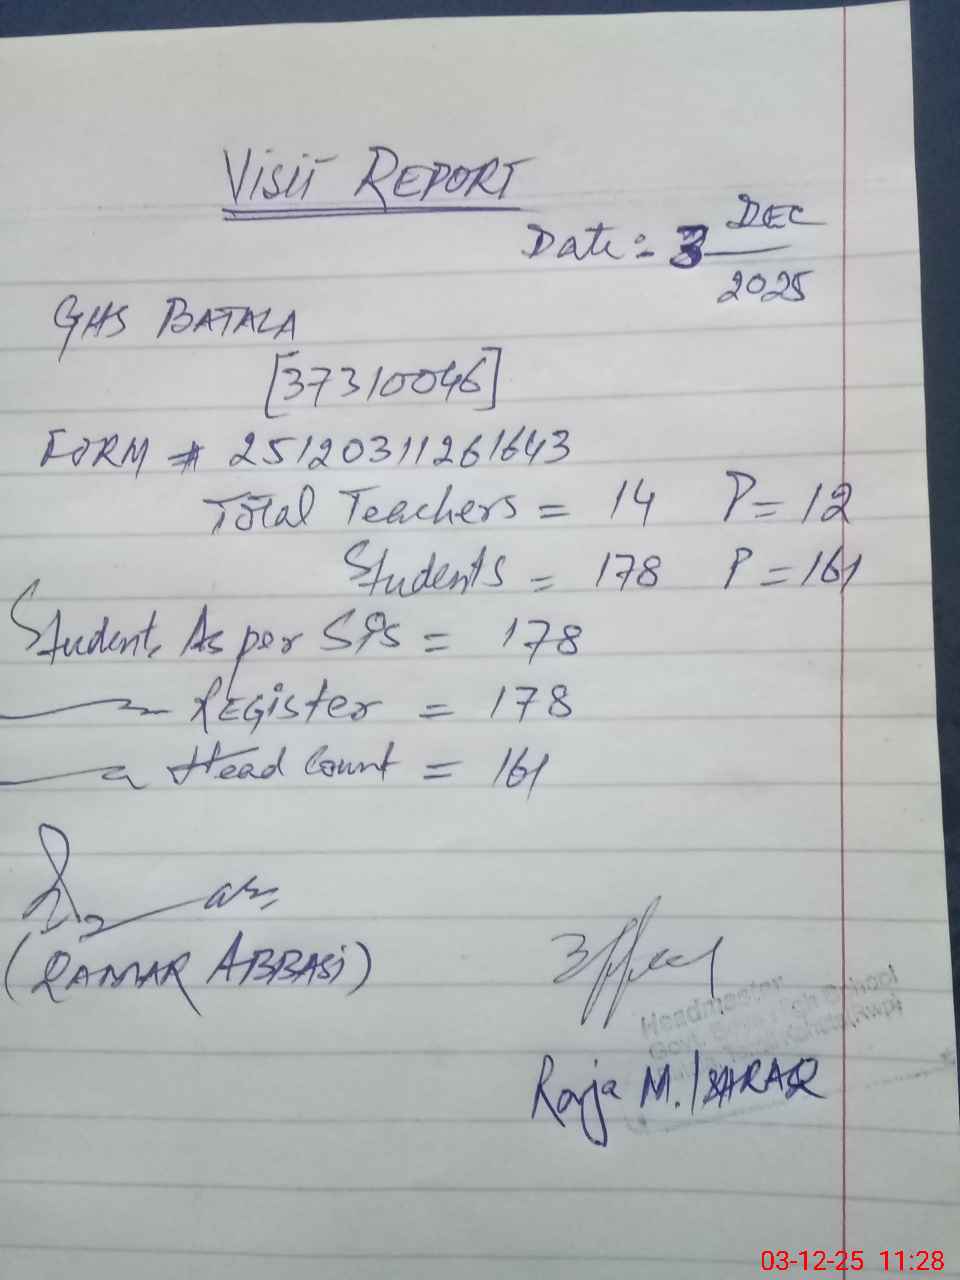 VISIT REPORT
Date:- 3 DEC
2025
GHS BATALA
[37310046]
FORM # 25120311261643
Total Teachers = 14 P = 12
Students = 178 P = 161
Student As per SIS = 178
Register = 178
Head Count = 161
(QAMAR ABBASI)
Headmaster
Govt. Boys High School
Raja M. ISHRAQ
03-12-25 11:28